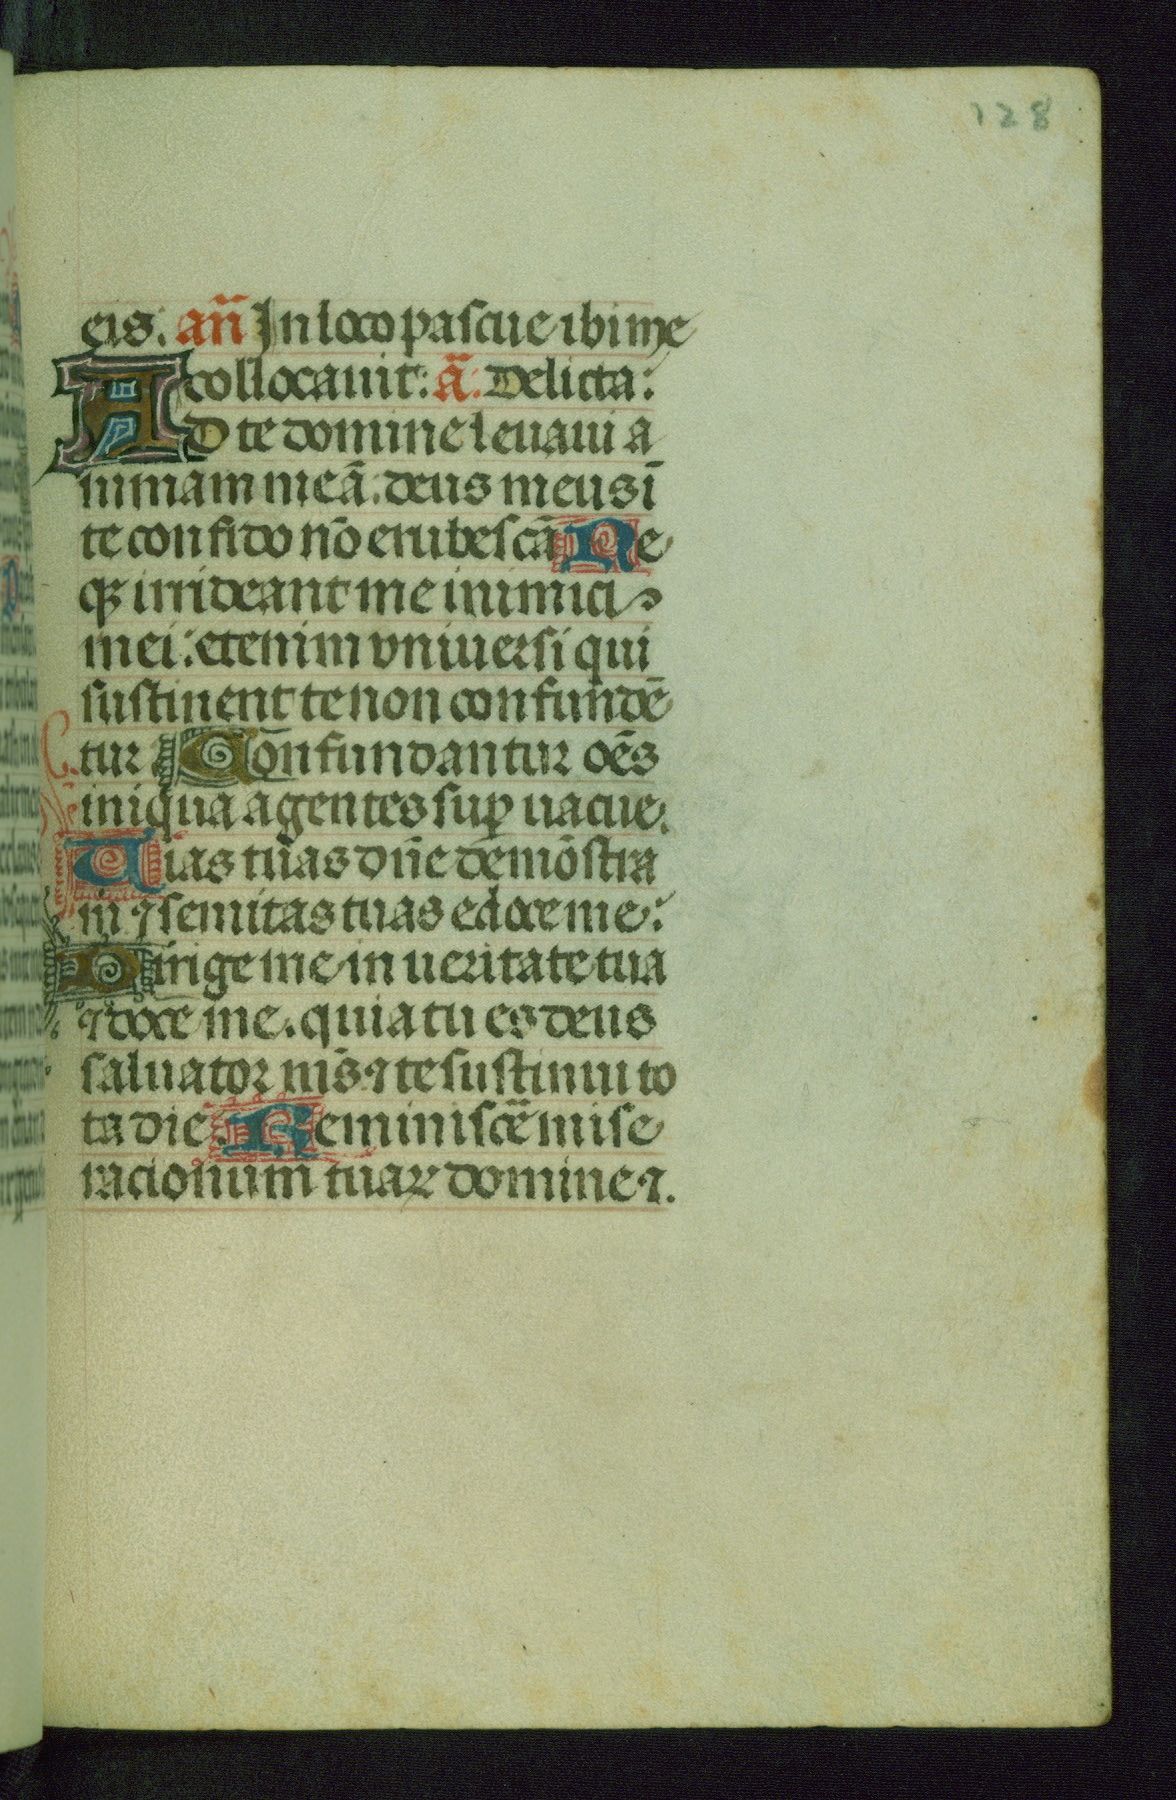 128
eis. an̄ In loco pascue ibi me
collocauit: ā. Delicta:
AD te domine leuaui a
nimam meā. deus meus ī
te confido nō erubescā Ne
qꝫ irrideant me inimici
mei: etenim vniuersi qui
sustinent te non confundē
tur Confundantur oēs
iniqua agentes suꝑ uacue.
Uias tuas dn̄e demōstra
m ⁊ semitas tuas edoce me:
Dirige me in ueritate tua
⁊ doce me. quia tu es deus
saluator m̄s ⁊ te sustinui to
ta die Reminiscē mise
racionum tuaꝝ domine ⁊.